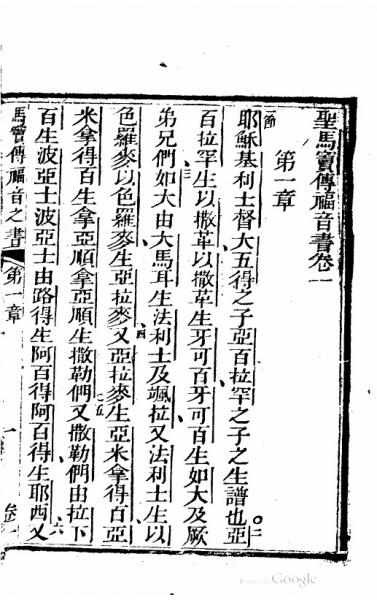 聖馬竇傳福音書卷一
第一章
一節
耶穌基利士督大五得之子亞百拉罕之子之生譜也○二亞
百拉罕生以撒革以撒革生牙可百牙可百生如大及厥
三
弟兄們如大由大馬耳生法利士及颯拉又法利士生以
四
色羅麥以色羅麥生亞拉麥又亞拉麥生亞米拿得百亞
五
米拿得百生拿亞順拿亞順生撒勒們又撒勒們由拉下
六
百生波亞士波亞士由路得生阿百得阿百得生耶西又
馬竇傳福音之書 第一章 一 卷一
Google